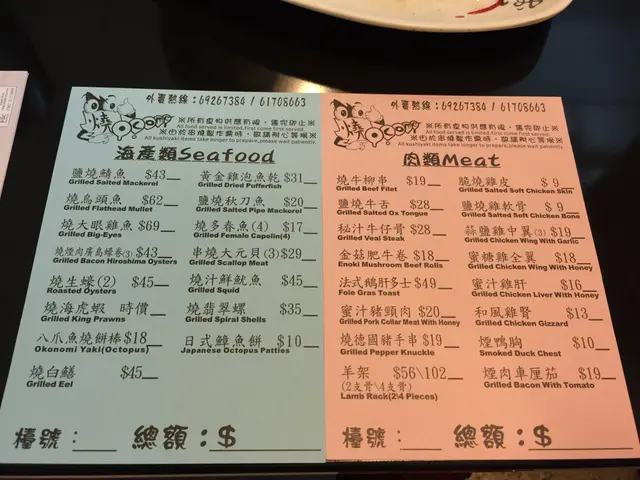 外賣熱線：69267384 / 61708663
燒
※所有食物供應有限，售完即止※
All food served is limited,first come first served.
※由於串燒製作需時，敬請耐心等候※
All kushiyaki items take longer to prepare,please wait patiently.
海產類Seafood
鹽燒鯖魚 $43
Grilled Salted Mackerel
燒烏頭魚 $62
Grilled Flathead Mullet
燒大眼雞魚 $69
Grilled Big-Eyes
燒煙肉廣島蠔卷(3) $43
Grilled Bacon Hiroshima Oysters
燒生蠔(2) $45
Roasted Oysters
燒海虎蝦 時價
Grilled King Prawns
八爪魚燒餅棒 $18
Okonomi Yaki(Octopus)
燒白鱔 $45
Grilled Eel
黃金雞泡魚乾 $31
Grilled Dried Pufferfish
鹽燒秋刀魚 $20
Grilled Salted Pipe Mackerel
燒多春魚(4) $17
Grilled Female Capelin(4)
串燒大元貝(3) $29
Grilled Scallop Meat
燒汁鮮魷魚 $45
Grilled Squid
燒翡翠螺 $35
Grilled Spiral Shells
日式章魚餅 $10
Japanese Octopus Patties
檯號： 總額：$
外賣熱線：69267384 / 61708663
燒
※所有食物供應有限，售完即止※
All food served is limited,first come first served.
※由於串燒製作需時，敬請耐心等候※
All kushiyaki items take longer to prepare,please wait patiently.
肉類Meat
燒牛柳串 $19
Grilled Beef Filet
鹽燒牛舌 $28
Grilled Salted Ox Tongue
秘汁牛仔骨 $28
Grilled Veal Steak
金菇肥牛卷 $18
Enoki Mushroom Beef Rolls
法式鵝肝多士 $49
Foie Gras Toast
蜜汁豬頸肉 $20
Grilled Pork Collar Meat With Honey
燒德國豬手串 $19
Grilled Pepper Knuckle
羊架 $56\102
(2支骨\4支骨)
Lamb Rack(2\4 Pieces)
脆燒雞皮 $ 9
Grilled Salted Soft Chicken Skin
鹽燒雞軟骨 $ 9
Grilled Salted Soft Chicken Bone
蒜鹽雞中翼(3) $19
Grilled Chicken Wing With Garlic
蜜糖雞全翼 $18
Grilled Chicken Wing With Honey
蜜汁雞肝 $16
Grilled Chicken Liver With Honey
和風雞腎 $13
Grilled Chicken Gizzard
煙鴨胸 $10
Smoked Duck Chest
煙肉車厘茄 $19
Grilled Bacon With Tomato
檯號： 總額：$